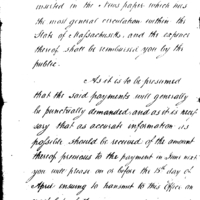 inserted in the News paper which has
the most general circulation within the
State of Massachusetts, and the expence
thereof shall be reimbursed you by the
public.
As it is to be presumed
that the said payments will generally
be punctually demanded, and as it is neces
sary that as accurate information as
possible should be received of the amount
thereof previous to the payment in June next
you will please on or before the 15th day of
April ensuing to transmit to this Office an